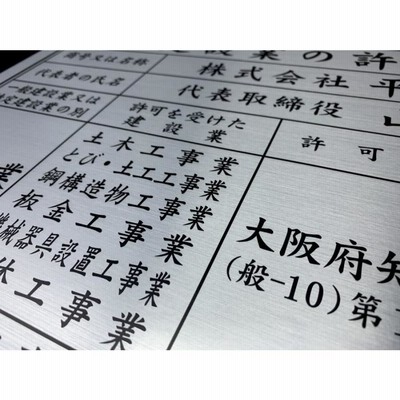 建設業の許
商号又は名称
株式会社平
代表者の氏名
代表取締役
一般建設業又は
特定建設業の別
許可を受けた
建設業
許可
土木工事業
とび・土工工事業
鋼構造物工事業
板金工事業
機械器具設置工事業
工事業
大阪府知
(般-10)第